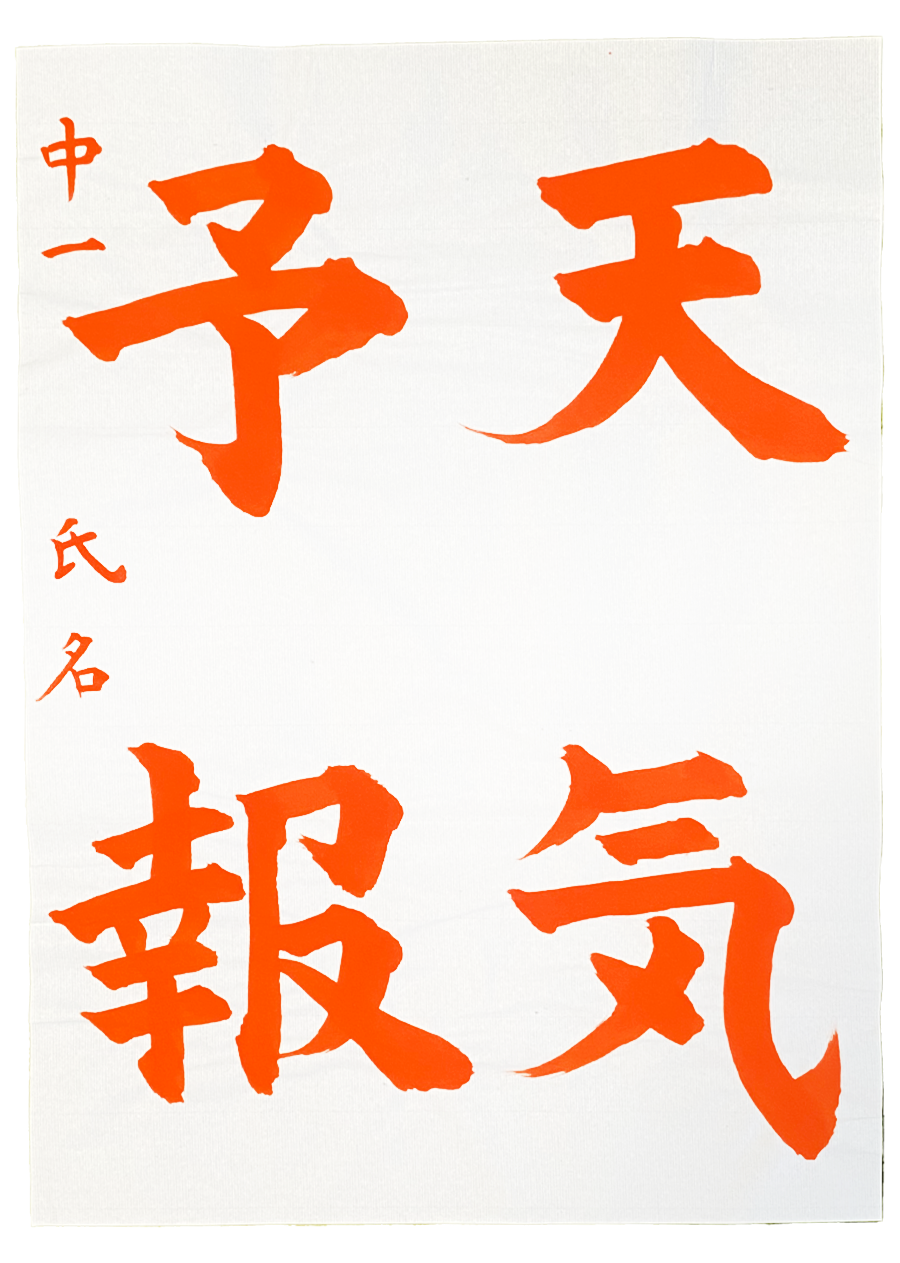 天気
予報
中一 氏名